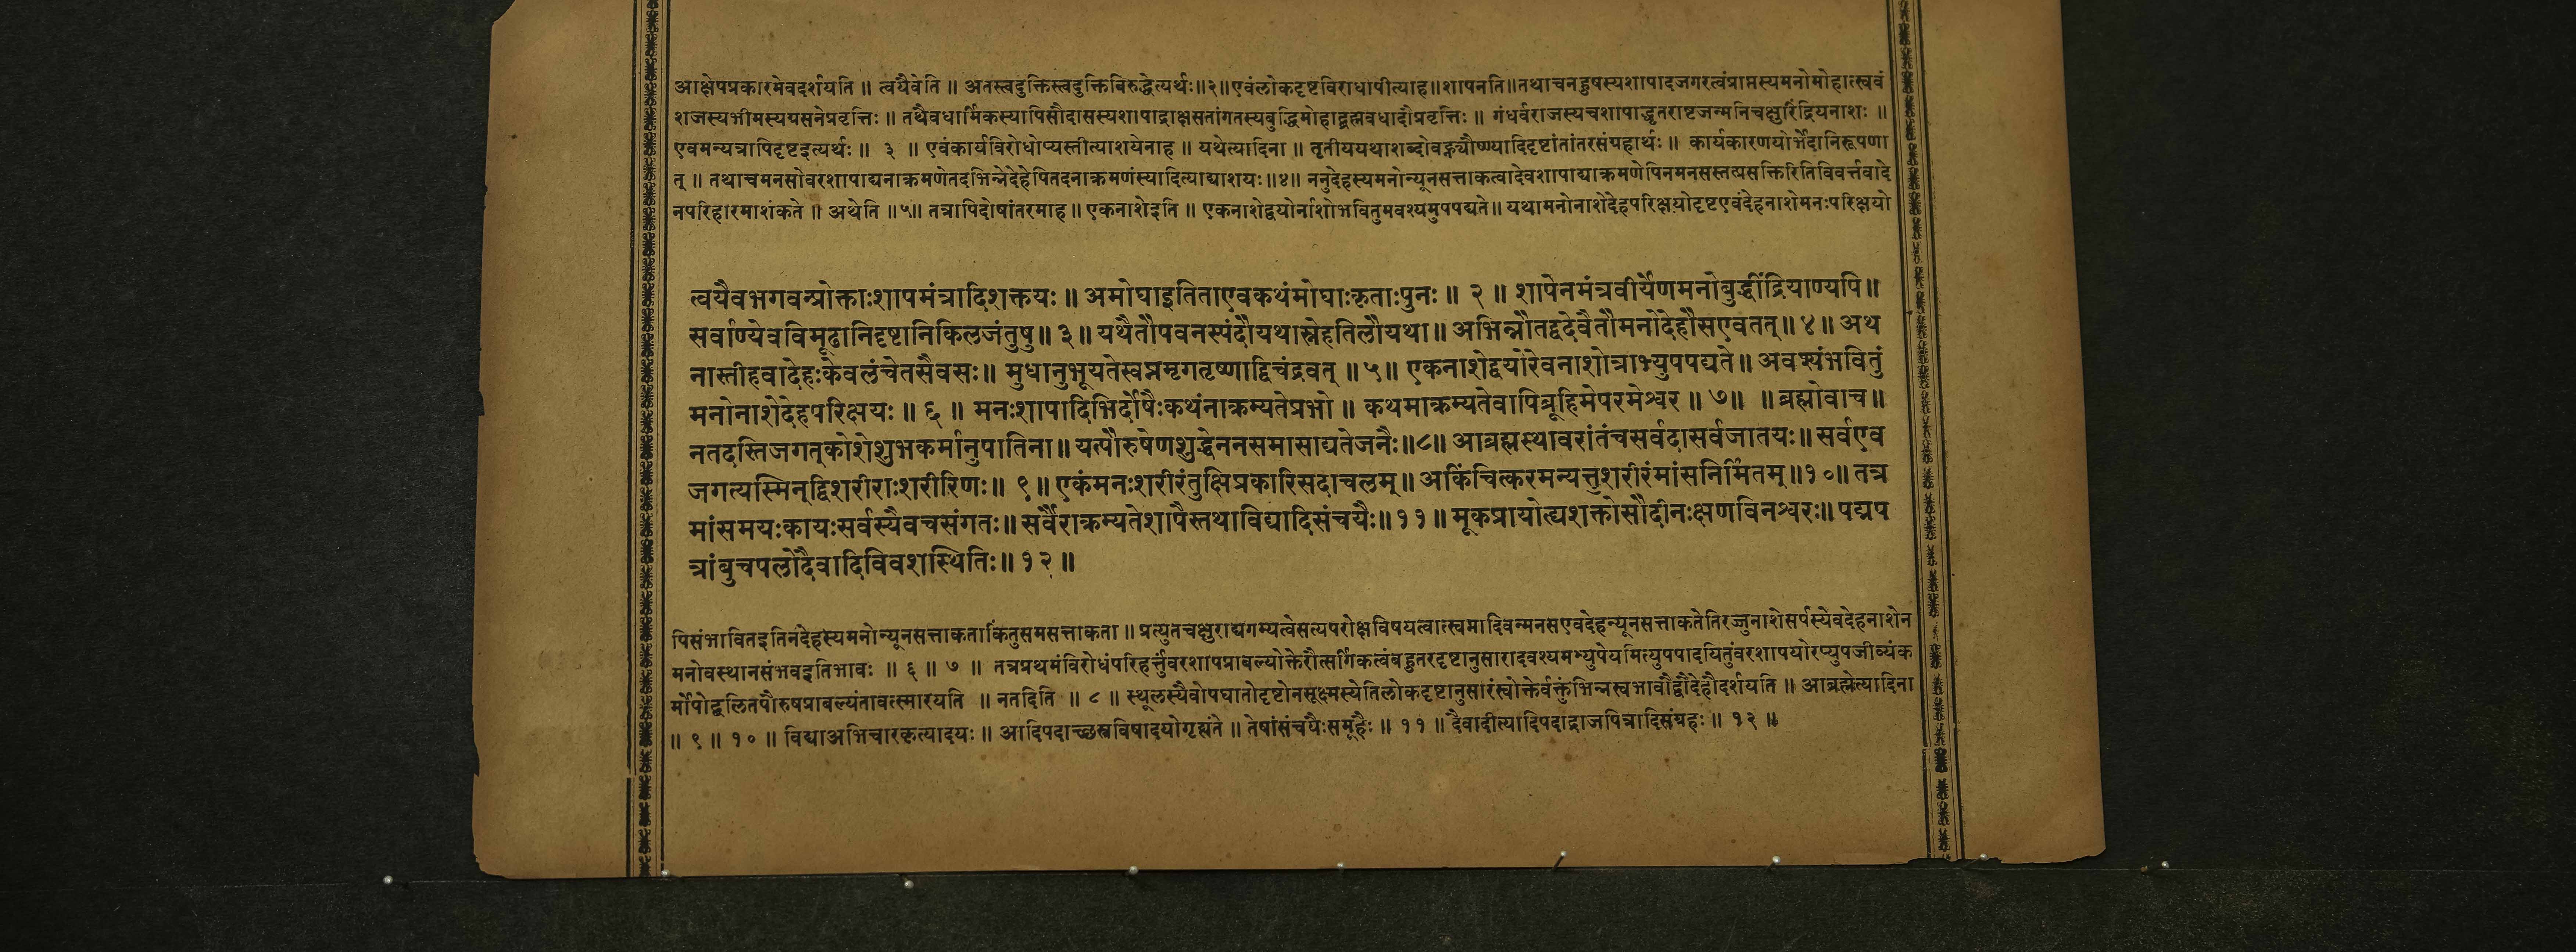 आक्षेपप्रकारमेवदर्शयति ॥ त्वयैवेति ॥ अतस्त्वदुक्तिस्त्वदुक्तिविरुद्धेत्यर्थः॥२॥एवंलोकदृष्टविराधापीत्याह॥शापेनेति॥तथाचनहुषस्यशापादजगरत्वंप्राप्तस्यमनोमोहात्स्ववं
शजस्यभीमस्यग्रसनेप्रवृत्तिः ॥ तथैवधार्मिकस्यापिसौदासस्यशापाद्राक्षसतांगतस्यबुद्धिमोहाद्ब्रह्मवधादौप्रवृत्तिः ॥ गंधर्वराजस्यचशापाद्धृतराष्ट्रजन्मनिचक्षुरिंद्रियनाशः ॥
एवमन्यत्रापिदृष्टइत्यर्थः ॥ ३ ॥ एवंकार्यविरोधोप्यस्तीत्याशयेनाह ॥ यथेत्यादिना ॥ तृतीययथाशब्दोवह्न्यौष्ण्यादिदृष्टांतांतरसंग्रहार्थः ॥ कार्यकारणयोर्भेदानिरूपणा
त् ॥ तथाचमनसोवरशापाद्यनाक्रमणेतदभिन्नेदेहेपितदनाक्रमणंस्यादित्याद्याशयः॥४॥ ननुदेहस्यमनोन्यूनसत्ताकत्वादेवशापाद्याक्रमणेपिनमनसस्तत्प्रसक्तिरितिविवर्त्तवादे
नपरिहारमाशंकते ॥ अथेति ॥५॥ तत्रापिदोषांतरमाह॥ एकनाशेइति ॥ एकनाशेद्वयोर्नाशोभवितुमवश्यमुपपद्यते॥ यथामनोनाशेदेहपरिक्षयोदृष्टएवंदेहनाशेमनःपरिक्षयो
त्वयैवभगवन्प्रोक्ताःशापमंत्रादिशक्तयः ॥ अमोघाइतिताएवकथंमोघाःकृताःपुनः ॥ २ ॥ शापेनमंत्रवीर्येणमनोबुद्धींद्रियाण्यपि॥
सर्वाण्येवविमूढानिदृष्टानिकिलजंतुषु॥ ३॥ यथैतौपवनस्पंदौयथास्नेहतिलौयथा॥ अभिन्नौतद्वदेवैतौमनोदेहौसएवतत्॥ ४॥ अथ
नास्तीहवादेहःकेवलंचेतसैवसः॥ मुधानुभूयतेस्वप्नमृगतृष्णाद्विचंद्रवत् ॥५॥ एकनाशेद्वयोरेवनाशोत्राभ्युपपद्यते॥ अवश्यंभवितुं
मनोनाशेदेहपरिक्षयः ॥ ६ ॥ मनःशापादिभिर्दोषैःकथंनाक्रम्यतेप्रभो ॥ कथमाक्रम्यतेवापिब्रूहिमेपरमेश्वर ॥ ७॥ ॥ब्रह्मोवाच॥
नतदस्तिजगत्कोशेशुभकर्मानुपातिना॥ यत्पौरुषेणशुद्धेननसमासाद्यतेजनैः॥८॥ आब्रह्मस्थावरांतंचसर्वदासर्वजातयः॥ सर्वएव
जगत्यस्मिन्द्विशरीराःशरीरिणः॥ ९॥ एकंमनःशरीरंतुक्षिप्रकारिसदाचलम्॥ अकिंचित्करमन्यत्तुशरीरंमांसनिर्मितम्॥१०॥ तत्र
मांसमयःकायःसर्वस्यैवचसंगतः॥ सर्वैराक्रम्यतेशापैस्तथाविद्यादिसंचयैः॥११॥ मूकप्रायोत्यशक्तोसौदीनःक्षणविनश्वरः॥ पद्मप
त्रांबुचपलोदैवादिविवशस्थितिः॥ १२ ॥
पिसंभावितइतिनदेहस्यमनोन्यूनसत्ताकताकिंतुसमसत्ताकता ॥ प्रत्युतचक्षुराद्यगम्यत्वेसत्यपरोक्षविषयत्वात्स्वप्नादिवन्मनसएवदेहन्यूनसत्ताकतेतिरज्जुनाशेसर्पस्येवदेहनाशेन
मनोवस्थानसंभवइतिभावः ॥ ६ ॥ ७ ॥ तत्रप्रथमंविरोधंपरिहर्त्तुंवरशापप्राबल्योक्तेरौत्सर्गिकत्वंबहुतरदृष्टानुसारादवश्यमभ्युपेयमित्युपपादयितुंवरशापयोरप्युपजीव्यंक
र्मोपोद्बलितपौरुषप्राबल्यंतावत्स्मारयति ॥ नतदिति ॥ ८ ॥ स्थूलस्यैवोपघातोदृष्टोनसूक्ष्मस्येतिलोकदृष्टानुसारंस्वोक्तेर्वक्तुंभिन्नस्वभावौद्वौदेहौदर्शयति ॥ आब्रह्मेत्यादिना
॥ ९ ॥ १० ॥ विद्याअभिचारकृत्यादयः ॥ आदिपदाच्छस्त्रविषादयोगृह्यंते ॥ तेषांसंचयैःसमूहैः ॥ ११ ॥ दैवादीत्यादिपदाद्राजपित्रादिसंग्रहः ॥ १२ ॥